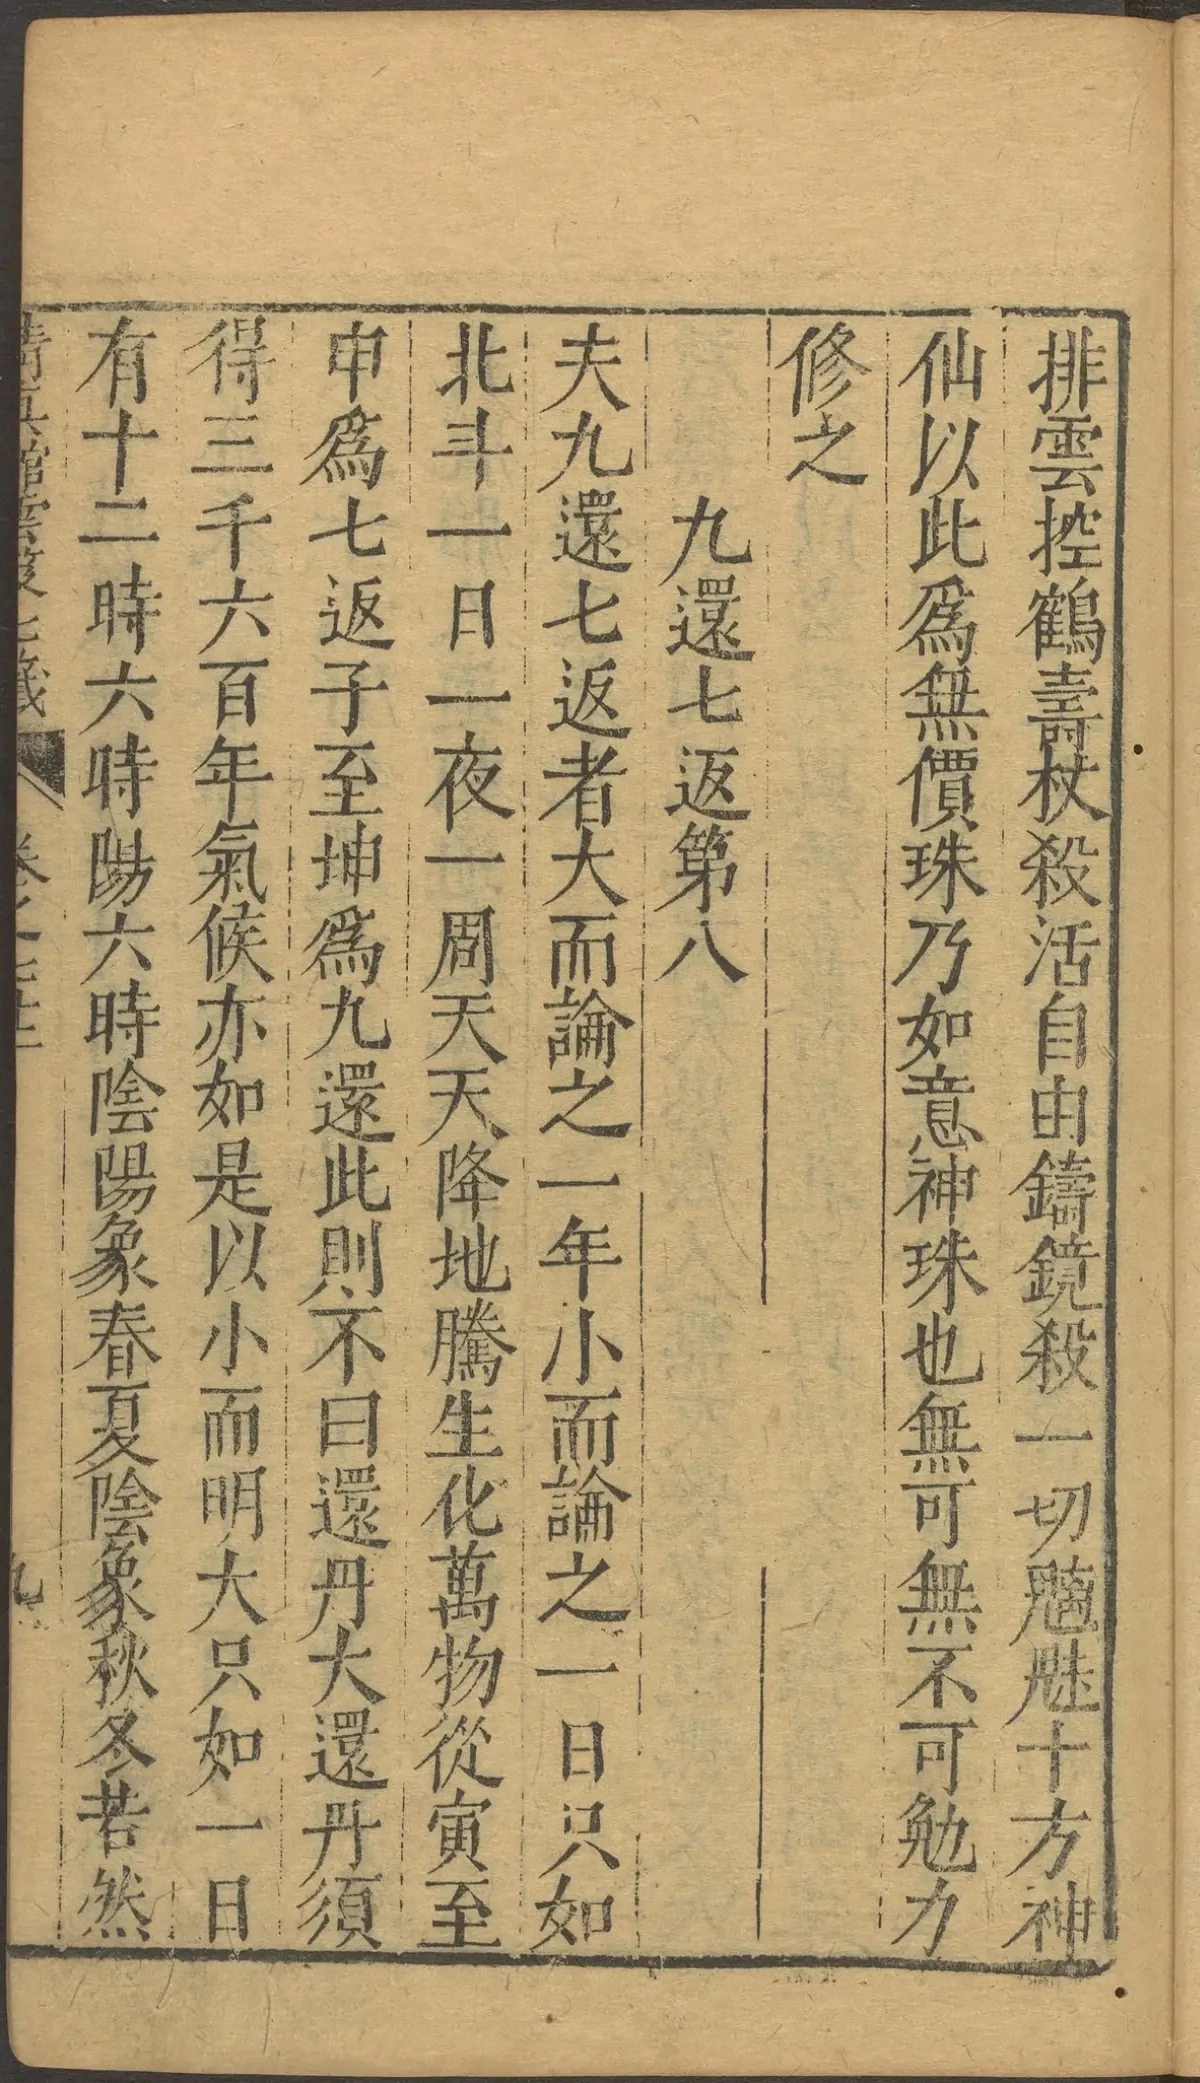 排雲控鶴壽杖殺活自由鑄鏡殺一切魑魅十方神
仙以此爲無價珠乃如意神珠也無可無不可勉力
修之
九還七返第八
夫九還七返者大而論之一年小而論之一日只如
北斗一日一夜一周天天降地騰生化萬物從寅至
申爲七返子至坤爲九還此則不曰還丹大還丹須
得三千六百年氣候亦如是以小而明大只如一日
有十二時六時陽六時陰陽象春夏陰象秋冬若然
清真館雲笈七籤 卷之七十三 九